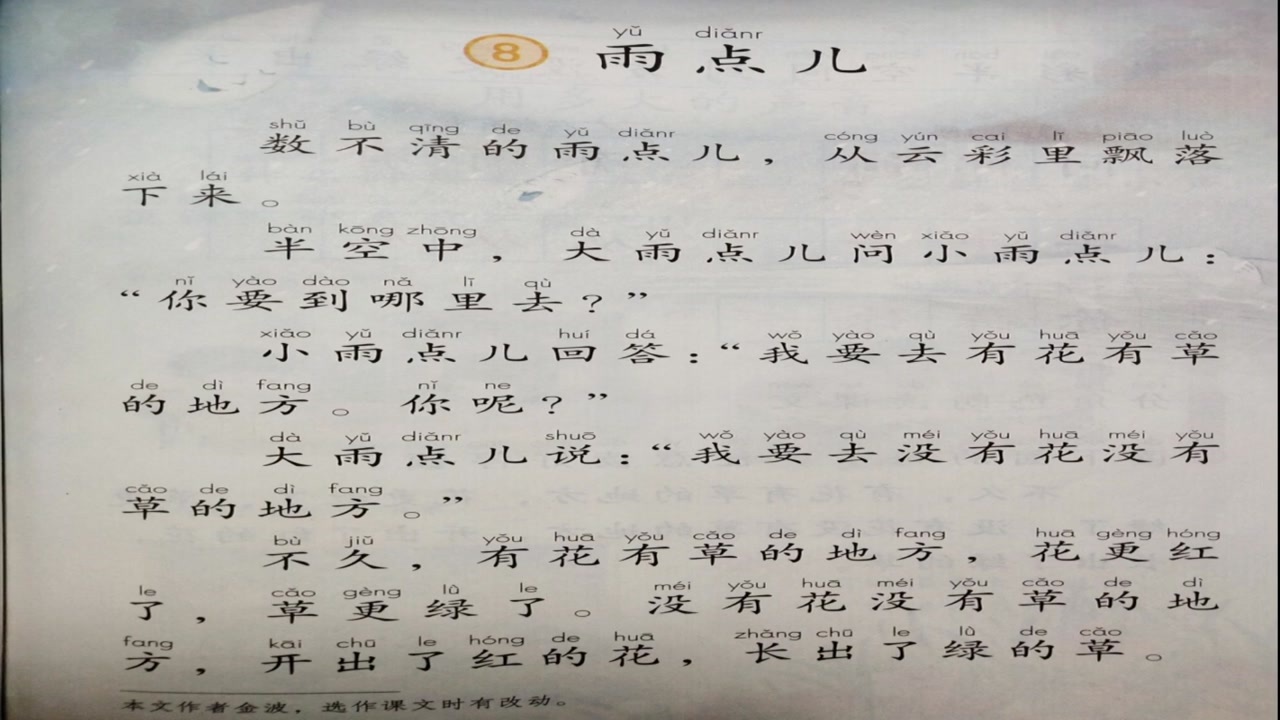 yǔ diǎnr
8 雨点儿
shǔ bù qīng de yǔ diǎnr cóng yún cai lǐ piāo luò
数不清的雨点儿，从云彩里飘落
xià lái
下来。
bàn kōng zhōng dà yǔ diǎnr wèn xiǎo yǔ diǎnr
半空中，大雨点儿问小雨点儿：
nǐ yào dào nǎ lǐ qù
“你要到哪里去？”
xiǎo yǔ diǎnr huí dá wǒ yào qù yǒu huā yǒu cǎo
小雨点儿回答：“我要去有花有草
de dì fang nǐ ne
的地方。你呢？”
dà yǔ diǎnr shuō wǒ yào qù méi yǒu huā méi yǒu
大雨点儿说：“我要去没有花没有
cǎo de dì fang
草的地方。”
bù jiǔ yǒu huā yǒu cǎo de dì fang huā gèng hóng
不久，有花有草的地方，花更红
le cǎo gèng lǜ le méi yǒu huā méi yǒu cǎo de dì
了，草更绿了。没有花没有草的地
fang kāi chū le hóng de huā zhǎng chū le lǜ de cǎo
方，开出了红的花，长出了绿的草。
本文作者金波，选作课文时有改动。